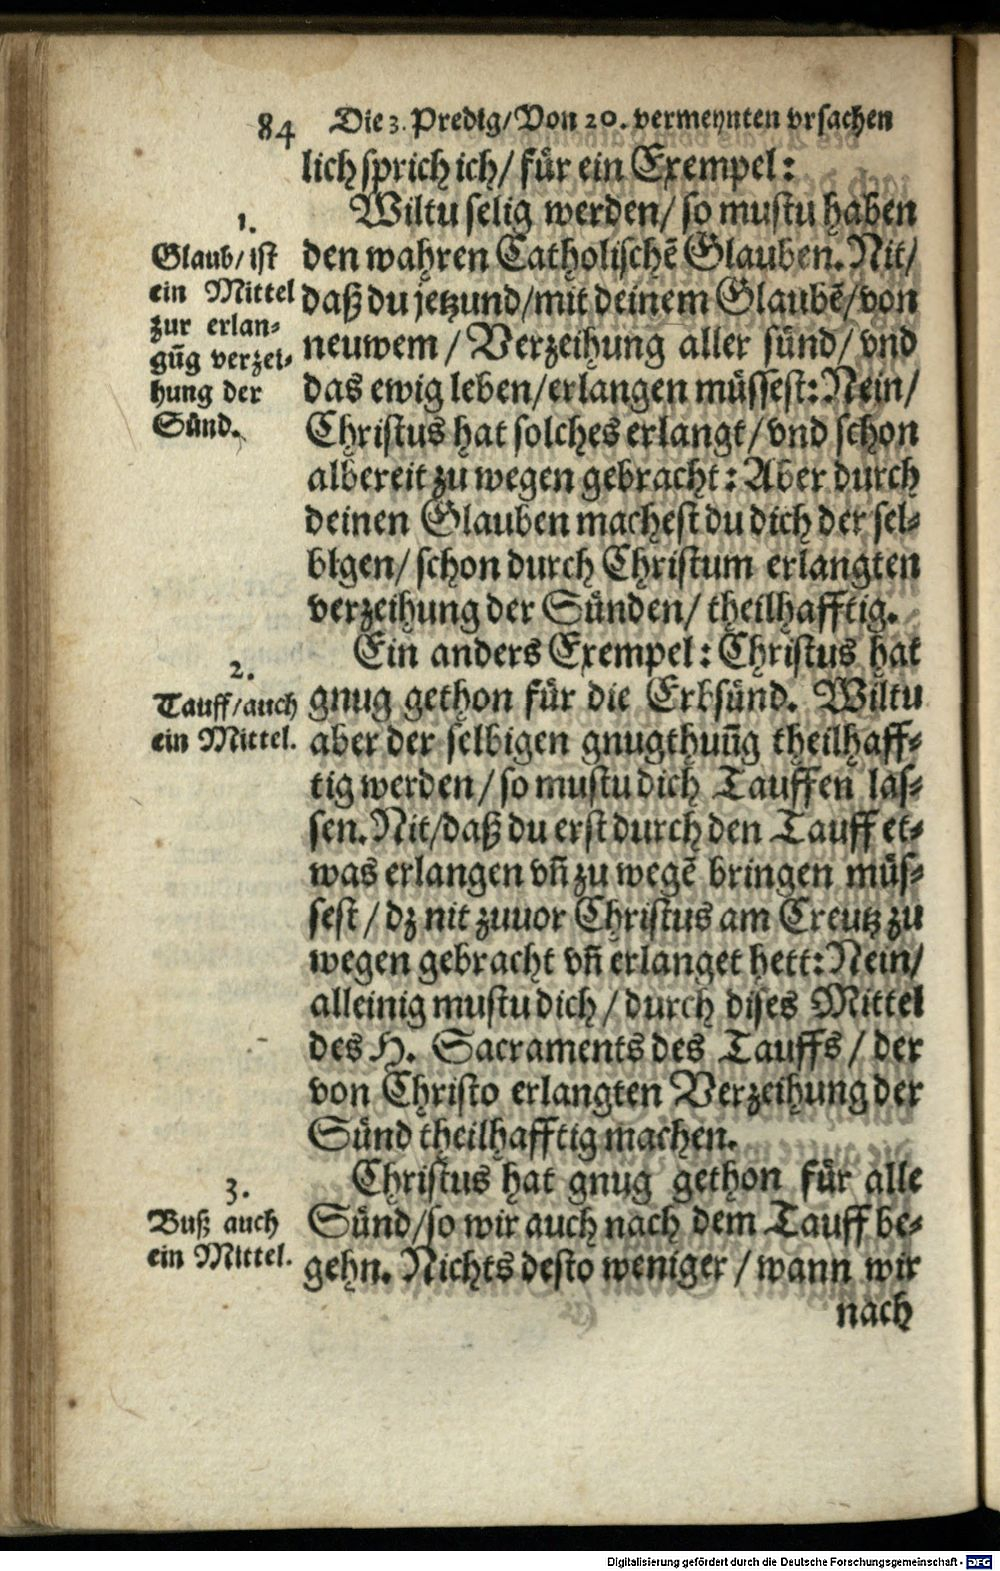 84 Die 3. Predig/Von 20. vermeynten vrsachen
lich sprich ich/ für ein Exempel:
Wiltu selig werden/ so mustu haben
den wahren Catholischē Glauben. Nit/
daß du jetzund/mit deinem Glaubē/von
neuwem/ Verzeihung aller sünd/ vnd
das ewig leben/erlangen müssest: Nein/
Christus hat solches erlangt/ vnd schon
albereit zu wegen gebracht: Aber durch
deinen Glauben machest du dich der sel-
bigen/ schon durch Christum erlangten
verzeihung der Sünden/ theilhafftig.
1.
Glaub/ ist
ein Mittel
zur erlan-
gūg verzei-
hung der
Sünd.
Ein anders Exempel: Christus hat
gnug gethon für die Erbsünd. Wiltu
aber der selbigen gnugthuūg theilhaff-
tig werden/ so mustu dich Tauffen las-
sen. Nit/daß du erst durch den Tauff et-
was erlangen vn̄ zu wegē bringen müs-
sest/ dz nit zuuor Christus am Creutz zu
wegen gebracht vn̄ erlanget hett: Nein/
alleinig mustu dich/ durch dises Mittel
des H. Sacraments des Tauffs/ der
von Christo erlangten Verzeihung der
Sünd theilhafftig machen.
2.
Tauff/auch
ein Mittel.
Christus hat gnug gethon für alle
Sünd/so wir auch nach dem Tauff be-
gehn. Nichts desto weniger/ wann wir
3.
Buß auch
ein Mittel.
nach
Digitalisierung gefördert durch die Deutsche Forschungsgemeinschaft - DFG